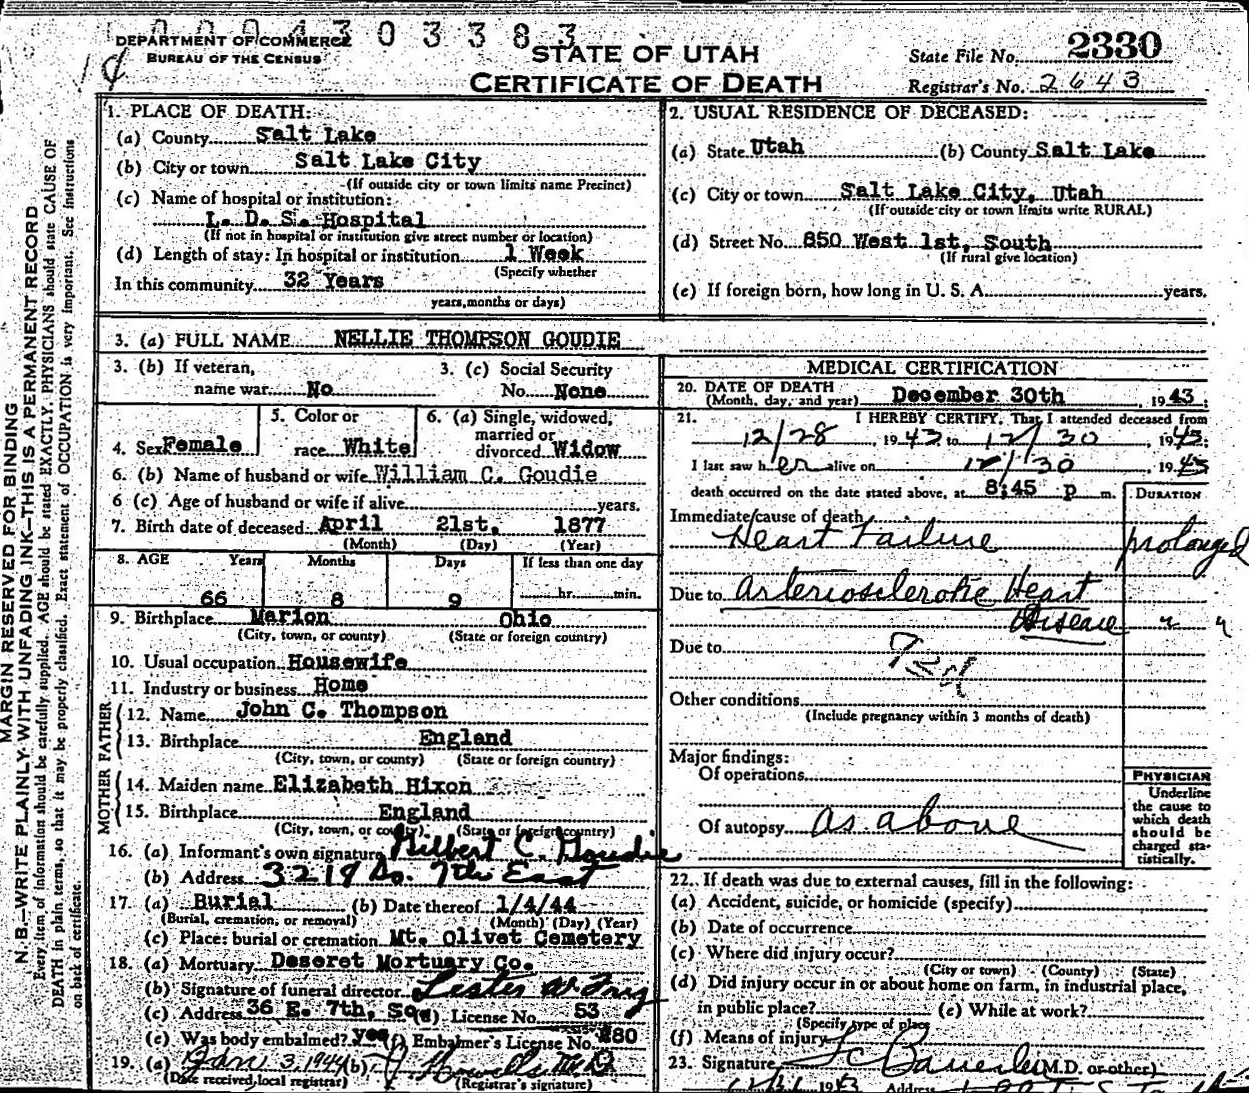 0004303383
DEPARTMENT OF COMMERCE
BUREAU OF THE CENSUS
STATE OF UTAH
CERTIFICATE OF DEATH
State File No. 2330
Registrar's No. 2643
MARGIN RESERVED FOR BINDING
N. B.—WRITE PLAINLY, WITH UNFADING INK—THIS IS A PERMANENT RECORD
Every item of information should be carefully supplied. AGE should be stated EXACTLY. PHYSICIANS should state CAUSE OF
DEATH in plain terms, so that it may be properly classified. Exact statement of OCCUPATION is very important. See instructions
on back of certificate.
1. PLACE OF DEATH:
(a) County Salt Lake
(b) City or town Salt Lake City
(If outside city or town limits name Precinct)
(c) Name of hospital or institution:
L. D. S. Hospital
(If not in hospital or institution give street number or location)
(d) Length of stay: In hospital or institution 1 Week
(Specify whether
In this community 32 Years
years, months or days)
2. USUAL RESIDENCE OF DECEASED:
(a) State Utah (b) County Salt Lake
(c) City or town Salt Lake City, Utah
(If outside city or town limits write RURAL)
(d) Street No. 850 West 1st, South
(If rural give location)
(e) If foreign born, how long in U. S. A. years.
3. (a) FULL NAME NELLIE THOMPSON GOUDIE
3. (b) If veteran, name war No
3. (c) Social Security No. None
4. Sex Female
5. Color or race White
6. (a) Single, widowed, married or divorced Widow
6. (b) Name of husband or wife William C. Goudie
6 (c) Age of husband or wife if alive years.
7. Birth date of deceased April 21st, 1877
(Month) (Day) (Year)
8. AGE Years Months Days If less than one day
66 8 9 hr. min.
9. Birthplace Marion Ohio
(City, town, or county) (State or foreign country)
10. Usual occupation Housewife
11. Industry or business Home
FATHER
12. Name John C. Thompson
13. Birthplace England
(City, town, or county) (State or foreign country)
MOTHER
14. Maiden name Elizabeth Hixon
15. Birthplace England
(City, town, or county) (State or foreign country)
16. (a) Informant's own signature Gilbert C. Goudie
(b) Address 3219 So. 7th East
17. (a) Burial (b) Date thereof 1/4/44
(Burial, cremation, or removal) (Month) (Day) (Year)
(c) Place: burial or cremation Mt. Olivet Cemetery
18. (a) Mortuary Deseret Mortuary Co.
(b) Signature of funeral director Lester W.
(c) Address 36 E. 7th, So. (d) License No. 53
(e) Was body embalmed? yes (f) Embalmer's License No. 280
19. (a) Jan 3, 1944 (b)
(Date received, local registrar) (Registrar's signature)
MEDICAL CERTIFICATION
20. DATE OF DEATH
(Month, day, and year) December 30th, 1943;
21. I HEREBY CERTIFY, That I attended deceased from
12/28, 1943 to 12/30 1943;
I last saw her alive on 12/30, 1943
death occurred on the date stated above, at 8:45 p m.
DURATION
Immediate cause of death
Heart Failure prolonged
Due to Arteriosclerotic Heart
Disease " "
Due to
Other conditions
(Include pregnancy within 3 months of death)
Major findings:
Of operations
Of autopsy as above
PHYSICIAN
Underline
the cause to
which death
should be
charged sta-
tistically.
22. If death was due to external causes, fill in the following:
(a) Accident, suicide, or homicide (specify)
(b) Date of occurrence
(c) Where did injury occur?
(City or town) (County) (State)
(d) Did injury occur in or about home on farm, in industrial place,
in public place? (e) While at work?
(Specify type of place)
(f) Means of injury
23. Signature (M.D. or other)
12/31 1943 Address